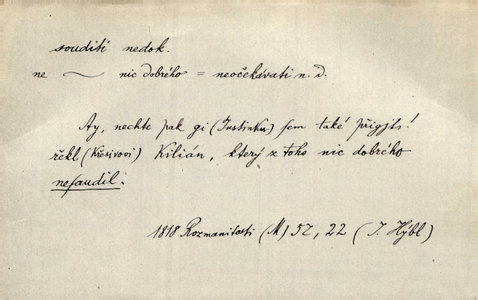 souditi nedok.
ne ~ nic dobrého = neočekávati n. d.
Ay, nechte pak gi (Justinku) sem také přigjti!
řekl (Křesivovi) Kilián, který z toho nic dobrého
nesaudil.
1818 Rozmanitosti (M) 57, 22 (J. Hýbl)